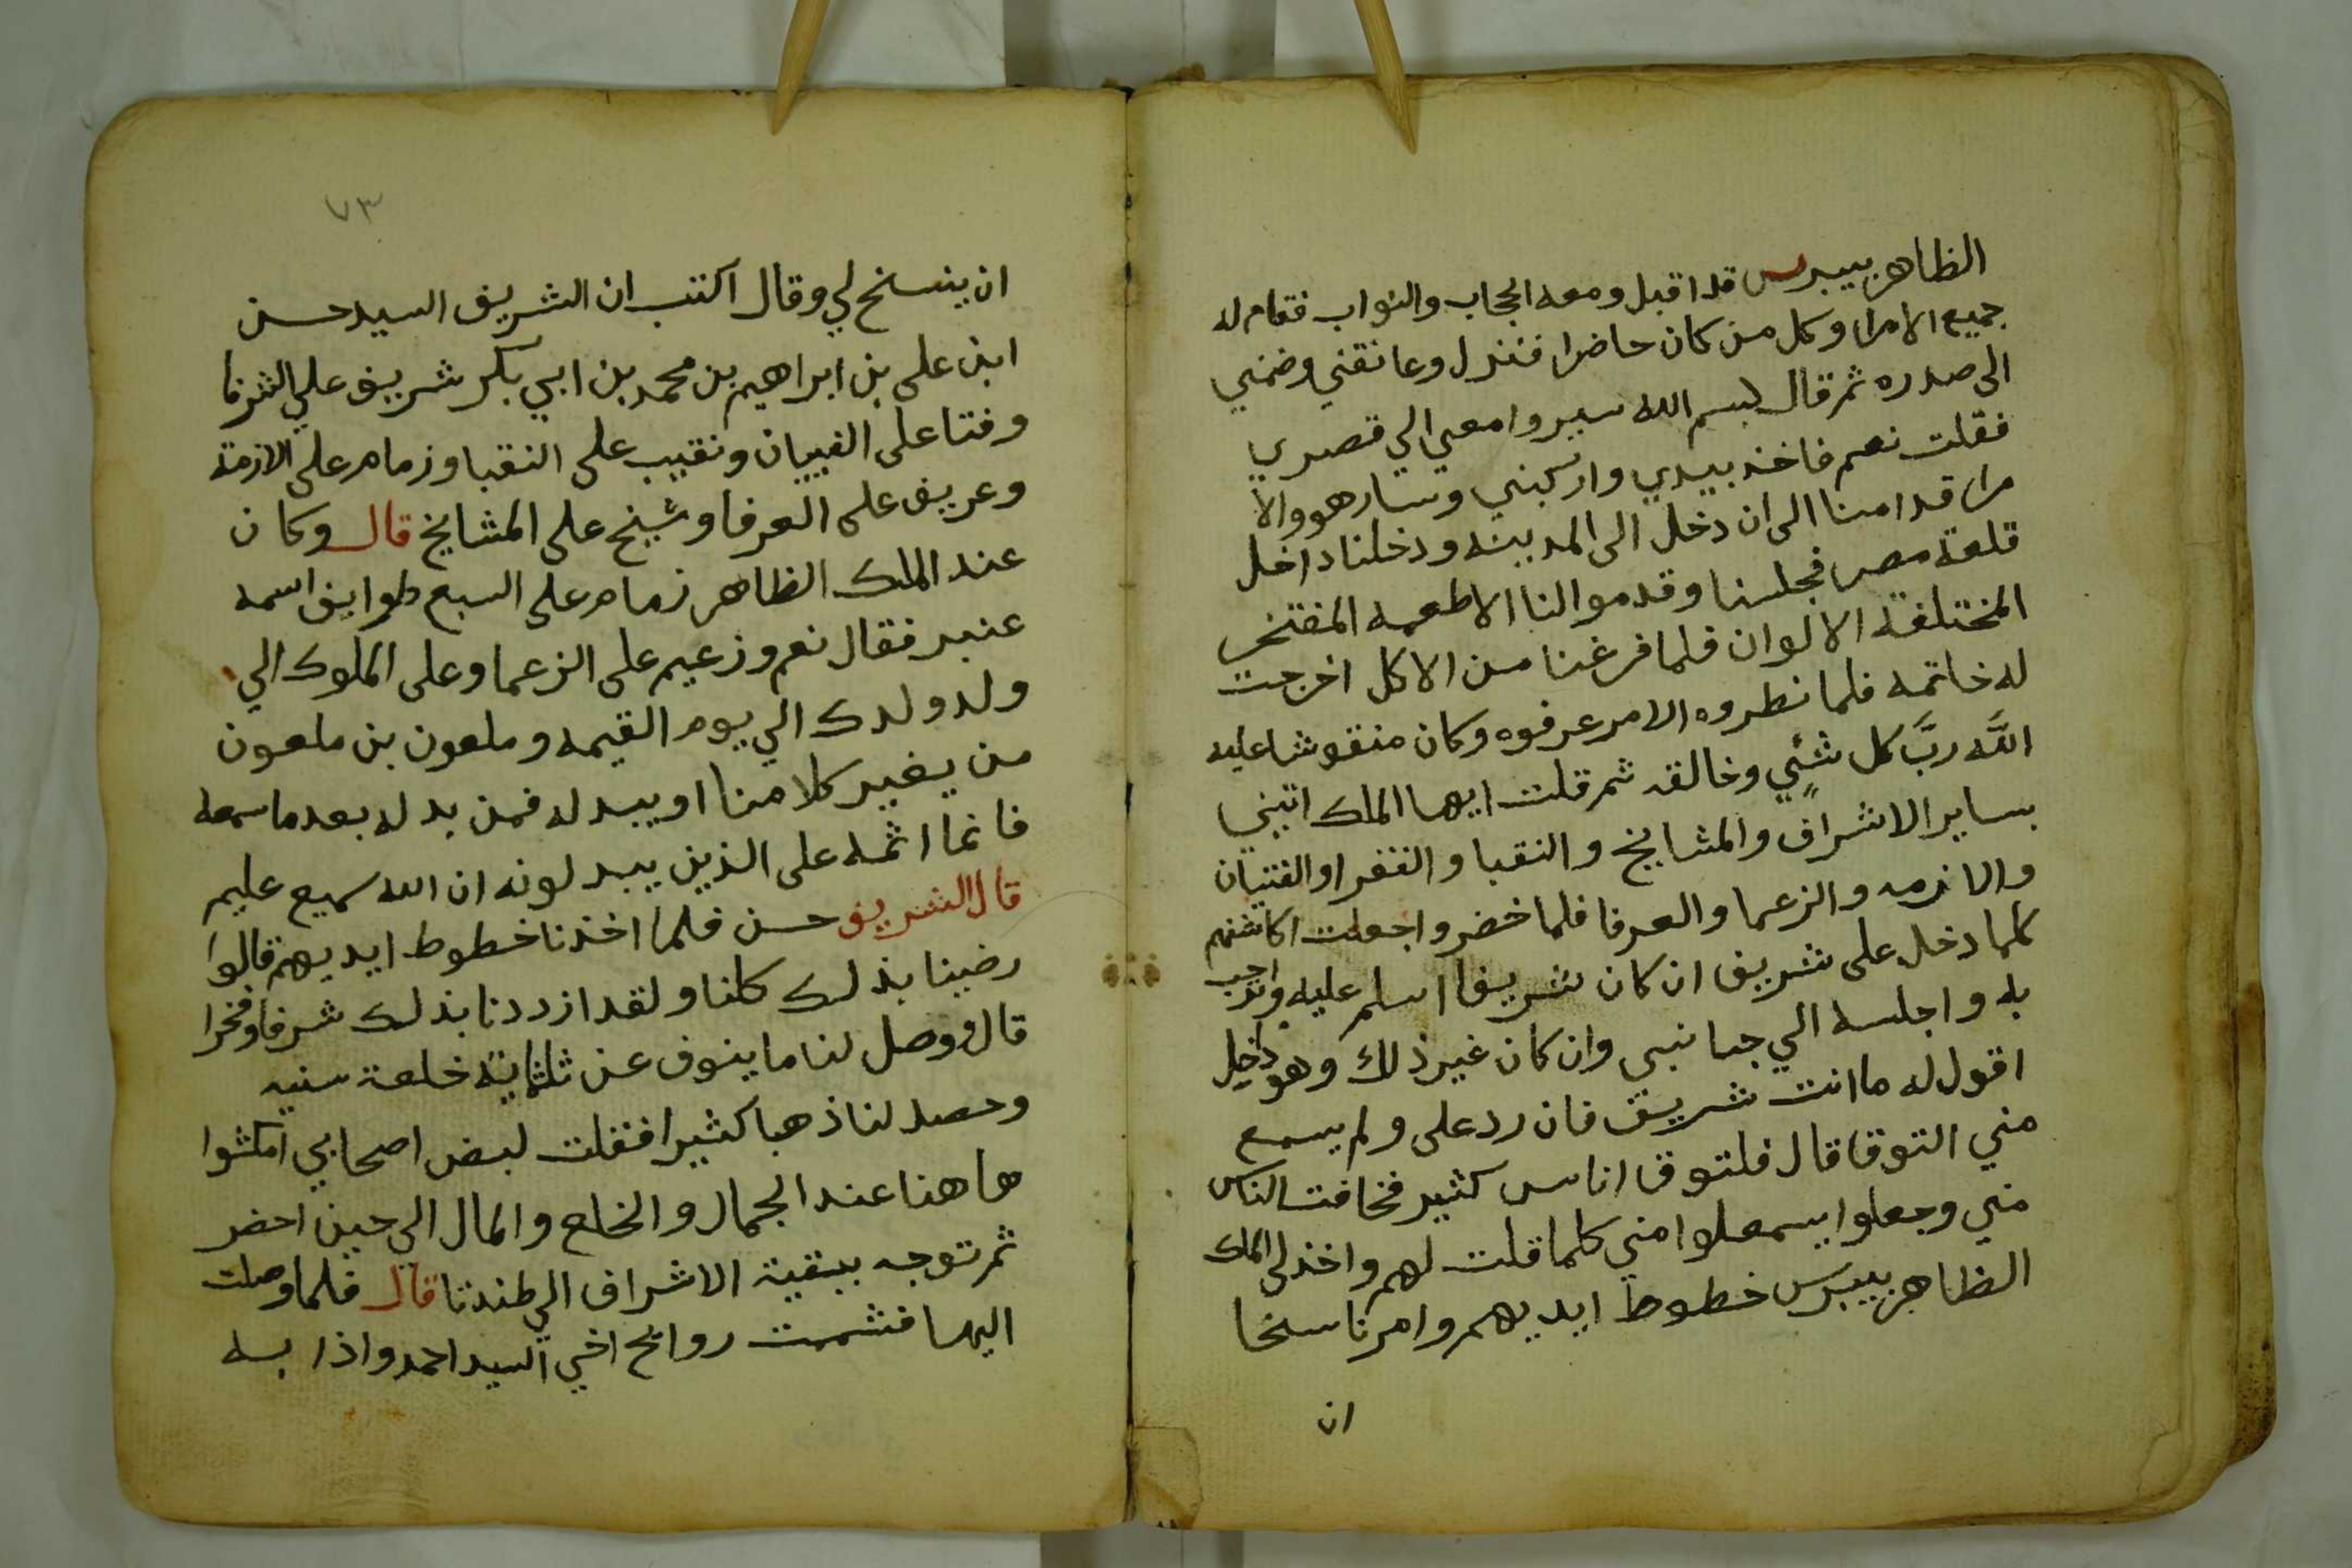 الظاهر بيبرس قد اقبل ومعه الحجاب والنواب فقام له
جميع الامرا وكل من كان حاضرا فنزل وعانقني وضمني
الى صدره ثم قال بسم الله سيروا معي الي قصري
فقلت نعم فاخذ بيدي واركبني وسار هو والا
مرا قدامنا الى ان دخل الى المدينه ودخلنا داخل
قلعة مصر فجلسنا وقدموا لنا الاطعمه المفتخر
المختلفة الالوان فلما فرغنا من الاكل اخرجت
له خاتمه فلما نظروه الامر عرفوه وكان منقوشا عليه
الله ربّ كل شئٍي وخالقه ثم قلت ايها الملك اتيني
بساير الاشراف والمشايخ والنقبا والفقرا والفتيان
والازمه والزعما والعرفا فلما حضروا جعلت اكاشفهم
كلما دخل على شريف ان كان شريفا اسلم عليه وارحب
به واجلسه الي جانبى وان كان غير ذلك وهو داخل
اقول له ما انت شريف فان رد على ولم يسمع
مني التوقا قال فلتوق اناس كثير فخافت الناس
مني وجعلوا يسمعلوا مني كلما قلت لهم واخذ لى الملك
الظاهر بيبرس خطوط ايديهم وامرنا سخا
ان
٧٣
ان ينسخ لي وقال اكتب ان الشريف السيد حسن
ابن على بن ابراهيم بن محمد بن ابي بكر شريف علي الشرفا
وفتا على الفييان ونقيب على النقبا وزمام على الازمة
وعريف على العرفا وشيخ على المشايخ قال وكان
عند الملك الظاهر زمام على السبع طوايف اسمه
عنبر فقال نعم وزعيم على الزعما وعلى الملوك الي
ولد ولدك الي يوم القيمه وملعون بن ملعون
من يغير كلامنا او يبدله فمن بدله بعد ما سمعه
فانما اثمه على الذين يبدلونه ان الله سميع عليم
قال الشريف حسن فلما اخذنا خطوط ايديهم قالوا
رضينا بذلك كلنا ولقد ازددنا بذلك شرفا وفخرا
قال ووصل لنا ما ينوف عن ثلثماية خلعة سنيه
وحصد لنا ذهبا كثيرا فقلت لبعض اصحابي امكثوا
هاهنا عند الجمال والخلع والمال الي حين احضر
ثم توجه ببقية الاشراف الي طندتا قال فلما وصلت
اليها فشممت روائح اخي السيد احمد واذا به